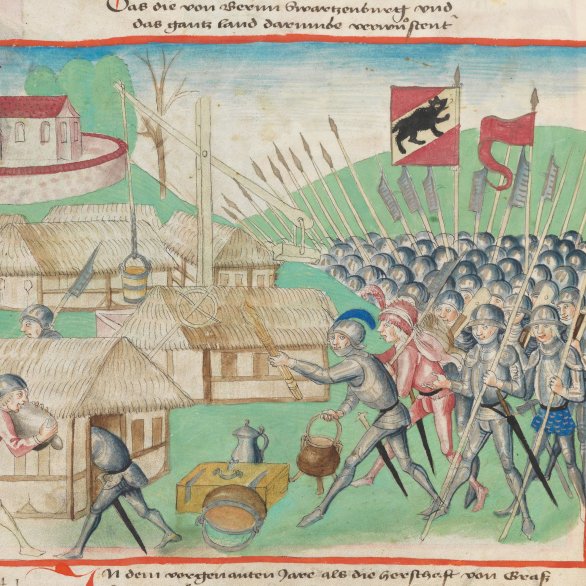 Das die von Bernn Swartzenburg vnd
das gantz land darumbe verwůstent
In dem vorgenanten Jare als die herschaft von